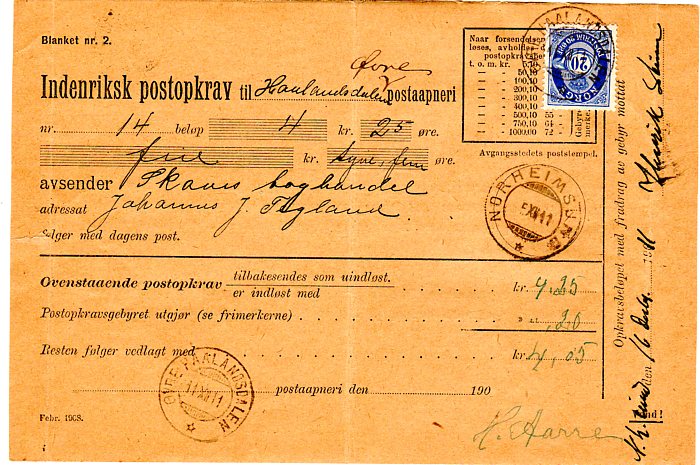 Blanket nr. 2.
Indenriksk postopkrav til Øvre Haalandsdalen postaapneri
nr. 14 beløp 4 kr. 25 øre.
fire kr. tyve, fem øre.
avsender Skaars boghandel
adressat Johannes J.
følger med dagens post.
Naar forsendelsen
løses, avholdes
postopkravsbeløp
t. o. m. kr. 5,10
50,10
100,10
200,10
300,10
400,10
500,10 55
750,10 64
1000,00 72
Gebyr
Avgangsstedets poststempel.
NORGE
20
ØVRE HAALANDSDALEN
NORHEIMSUND
5 XII 11
Ovenstaaende postopkrav tilbakesendes som uindløst.
er indløst med kr. 4,25
Postopkravsgebyret utgjør (se frimerkerne) ,20
Resten følger vedlagt med kr. 4,05
ØVRE HAALANDSDALEN
11 XII 11
postaapneri den 190
Febr. 1908.
H. Aarre
Opkravsbeløpet med fradrag av gebyr mottat
N.h.sund den 16 Decbr. 1911